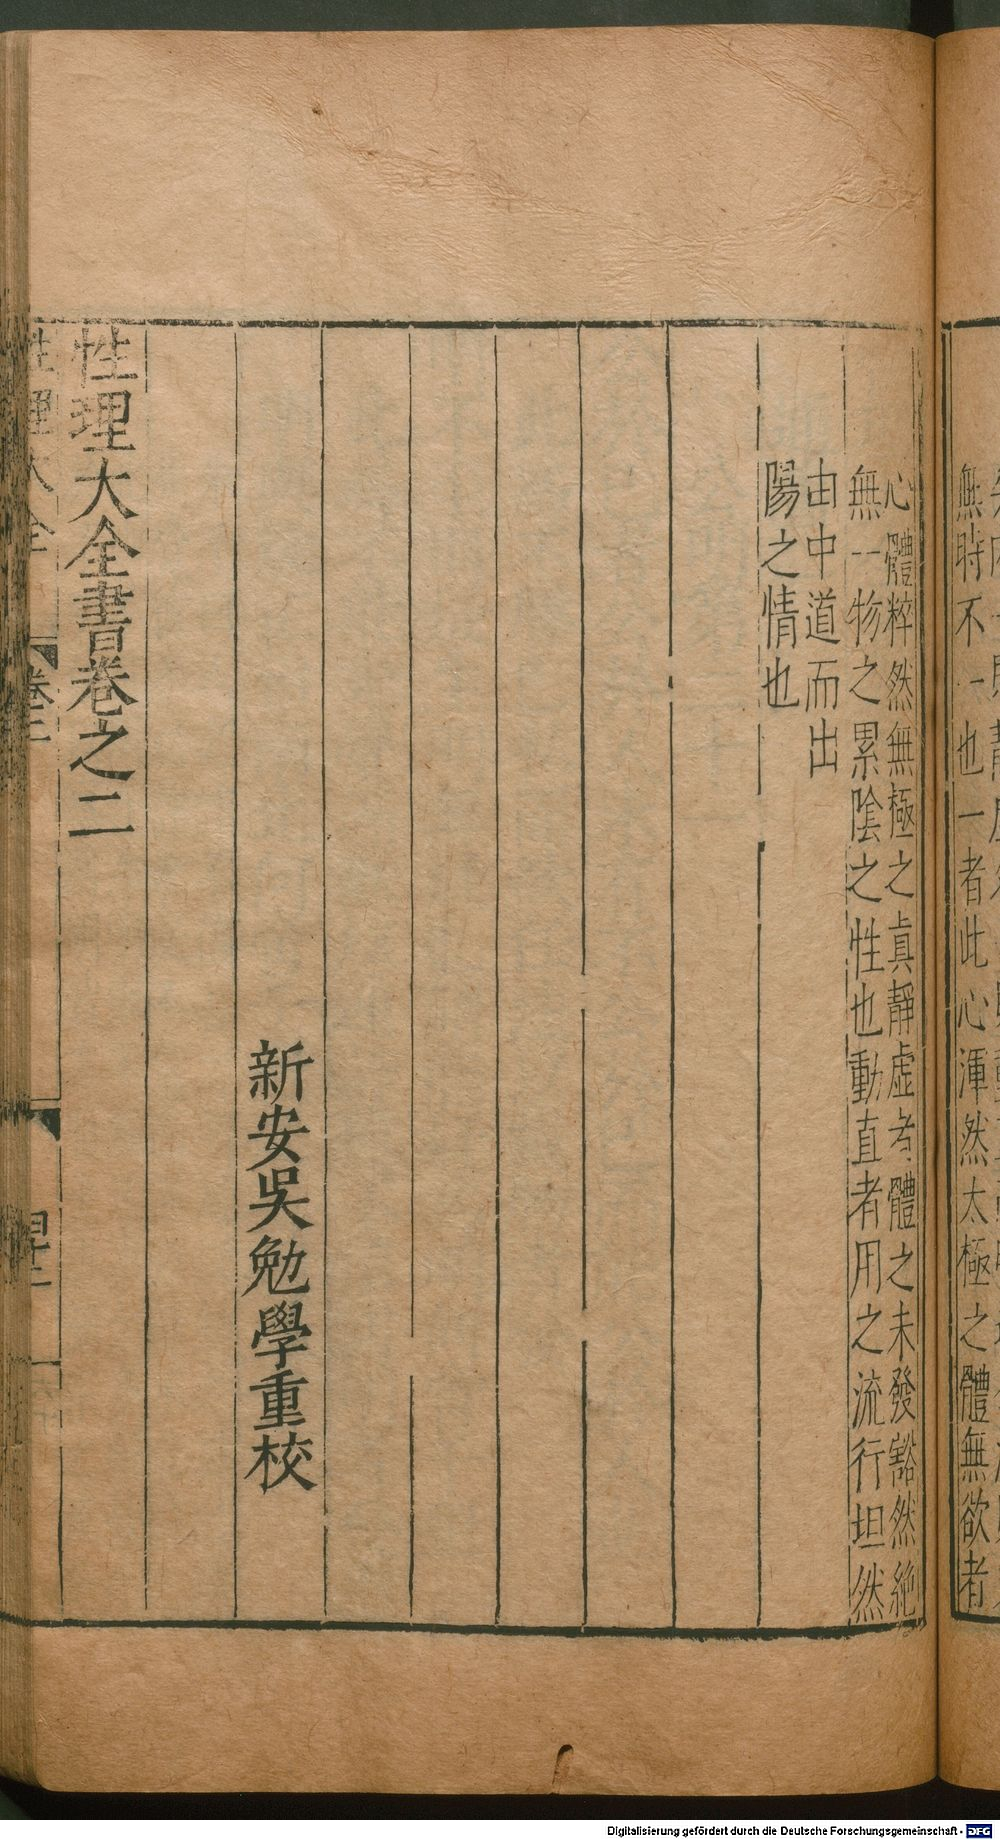 無時不一也一者此心渾然太極之體無欲者
心體粹然無極之真靜虛者體之未發豁然絶
無一物之累陰之性也動直者用之流行坦然
由中道而出
陽之情也
新安吳勉學重校
性理大全書卷之二
性理大全
卷二
Digitalisierung gefördert durch die Deutsche Forschungsgemeinschaft - DFG